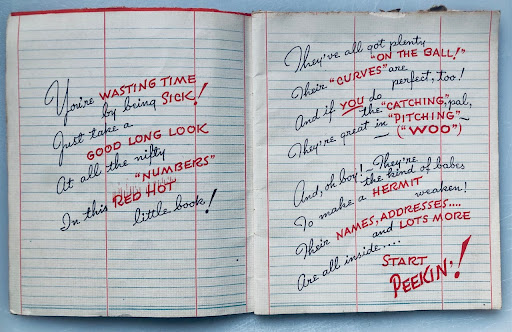 You're WASTING TIME
by being SICK!
Just take a
GOOD LONG LOOK
At all the nifty
"NUMBERS"
In this RED HOT
little book!
They've all got plenty
"ON THE BALL!"
Their "CURVES" are
perfect, too!
And if you do
the "CATCHING," pal,
They're great in "PITCHING"
("WOO")
And, oh boy! — They're
the kind of babes
To make a HERMIT
weaken!
Their NAMES, ADDRESSES....
and LOTS MORE
Are all inside....
START
PEEKIN'!